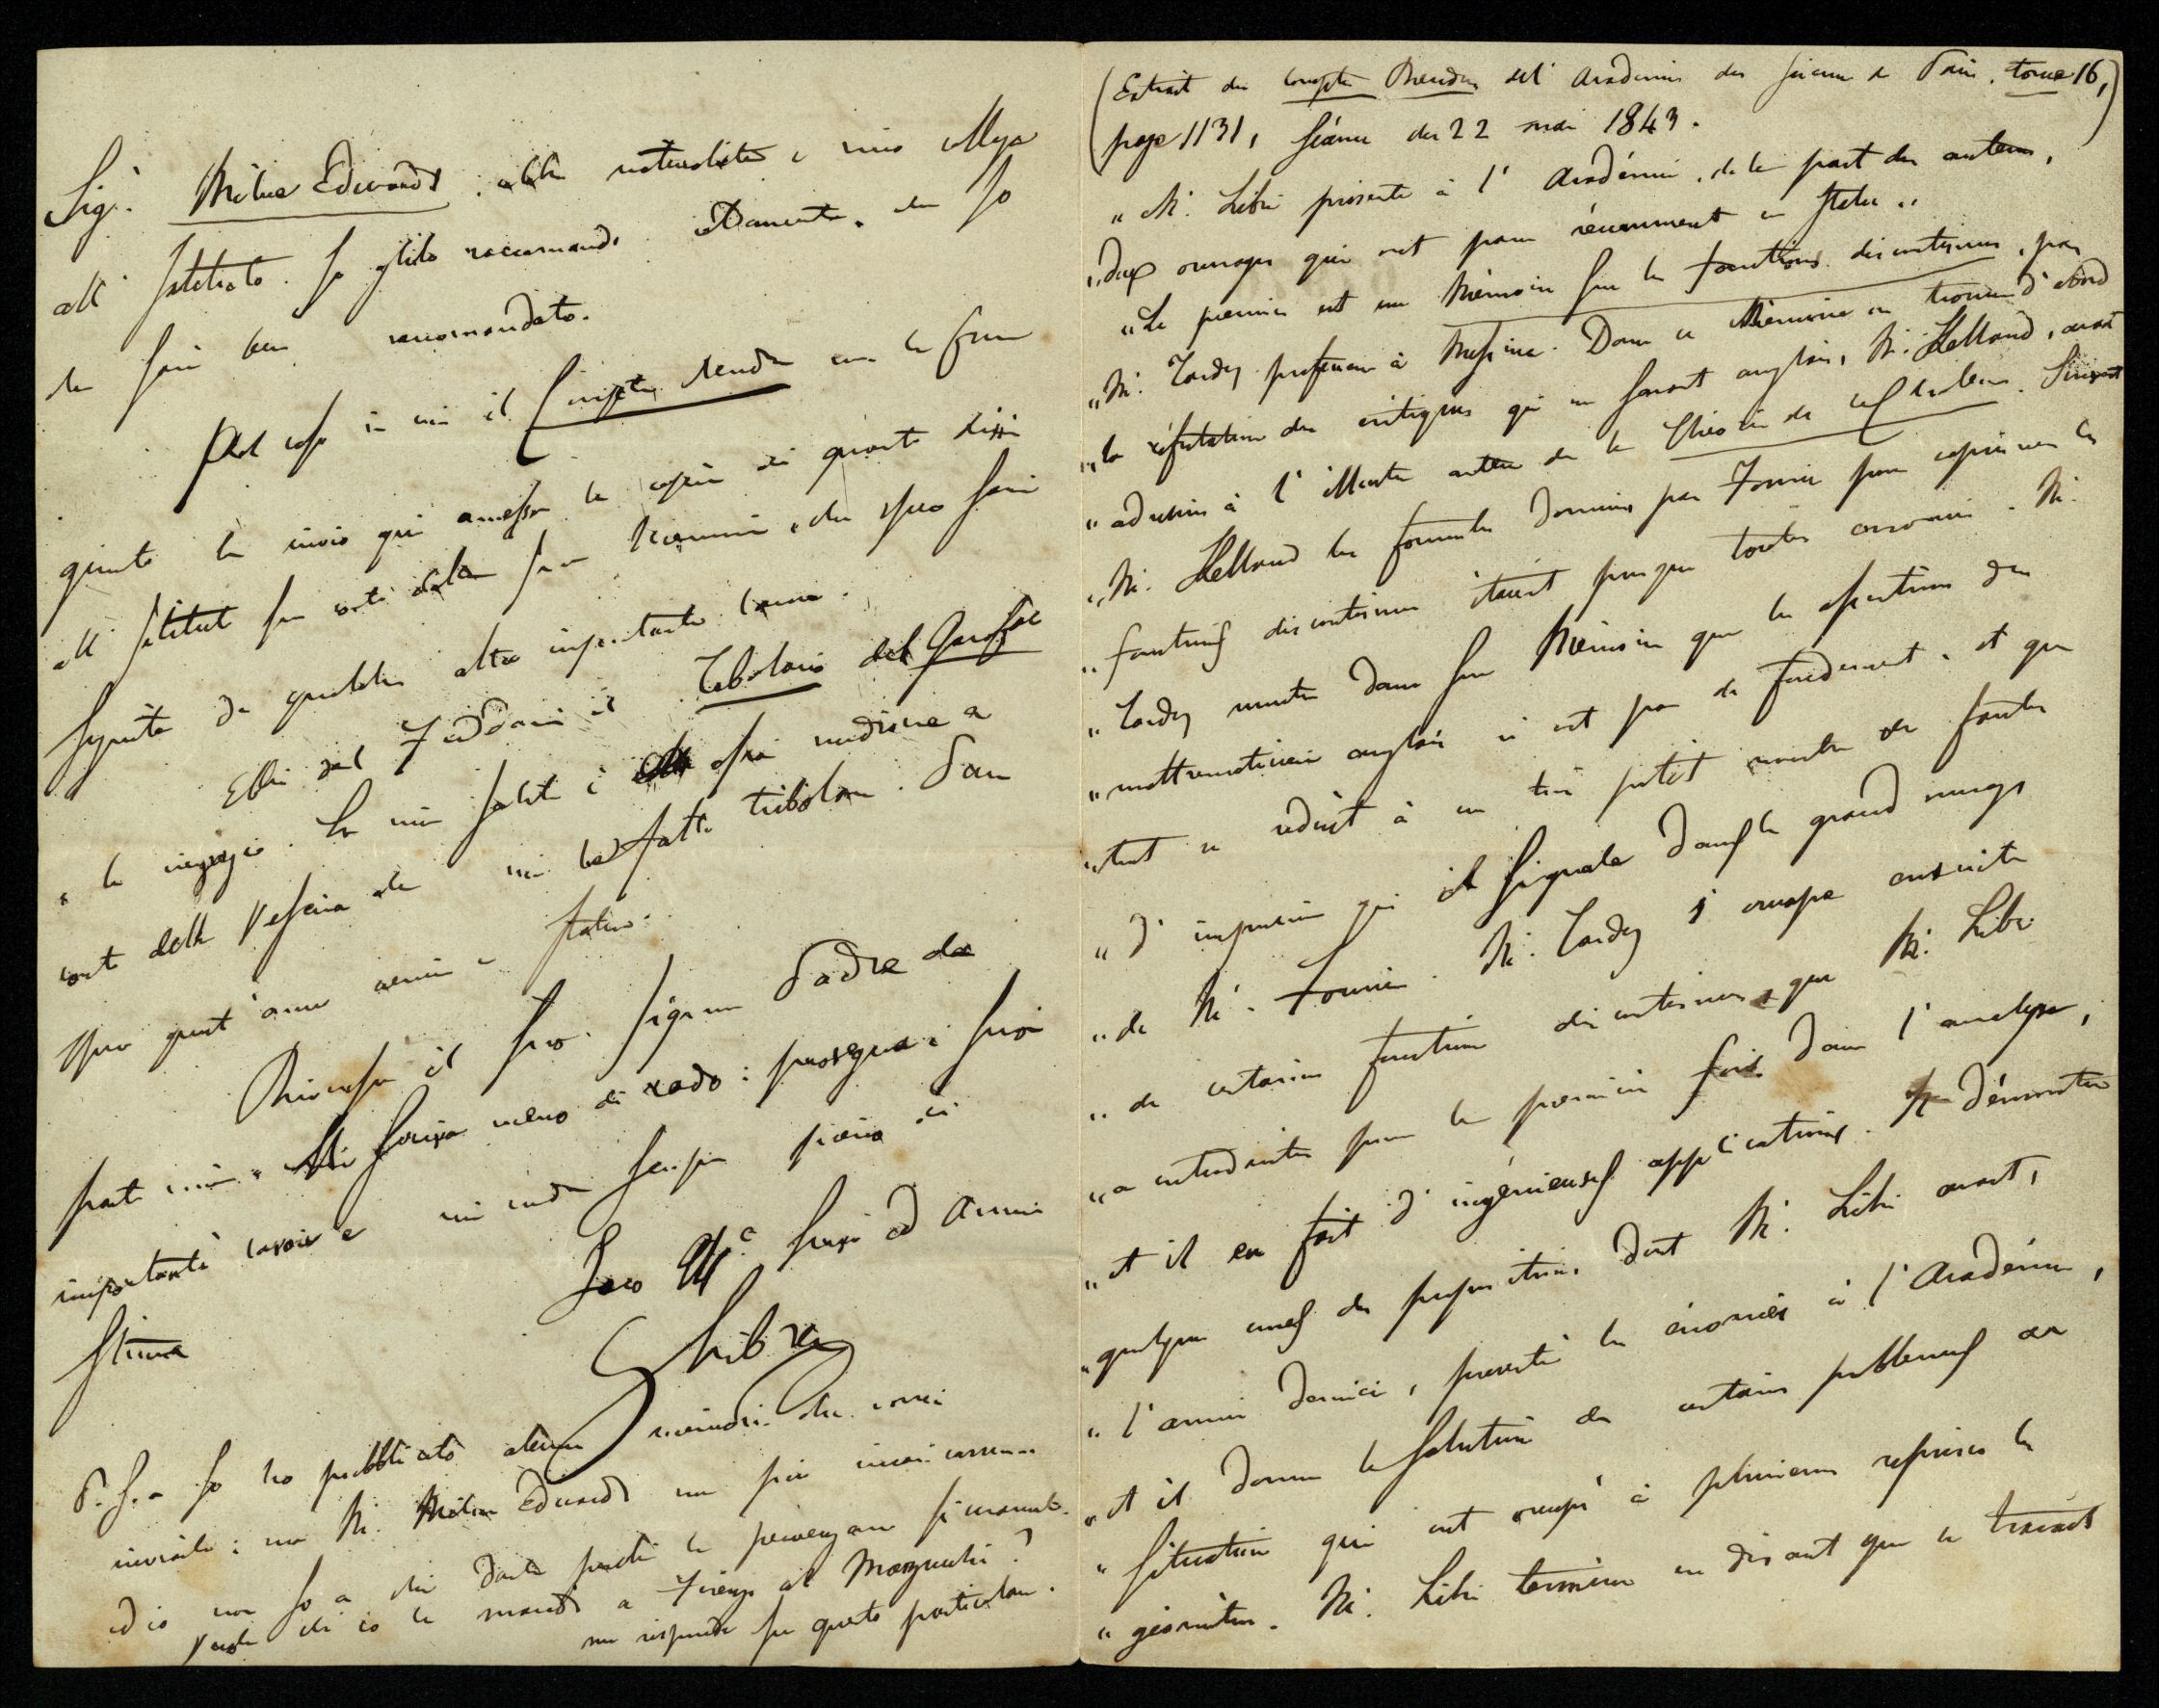 Sig.r Milne Edwards, celebre naturalista e mio collega
all' Istituto. Io glielo raccomando caldamente, e so
che sarà ben raccomandato.
Nel caso in cui il Compte rendu non le fosse
giunto le invio qui annessa la copia di quanto dissi
all' Istituto
seguito da qualche altro importante lavoro.
Ebbi dal Taddei il
e la ringrazio. La mia salute è assai mediocre a
conto della vescica che mi ha fatto tribolare.
quest' anno venire in Italia.
Riverisca il suo Signor Padre da
parte mia e mi scriva meno di rado: prosegua i suoi
importanti lavori e mi creda sempre pieno di
stima
Suo servo ed Amico
GLibri
P.S. Io ho pubblicato alcune memorie che vorrei
inviarle: ma M. Milne Edwards non può incaricarsene
ed io non so a chi darle perché le pervengano sicuramente.
Vuole che io le mandi a Firenze al
mi risponda su questo particolare.
(Extrait du Compte Rendu de l' Académie des Sciences de Paris, tome 16,)
page 1131, Séance du 22 mai 1843.
"M. Libri présente à l' Académie, de la part des auteurs,
"deux ouvrages qui ont paru récemment en Italie..
"Le premier est un Mémoire sur les fonctions discontinues, par
"M. Tardy professeur à Messine. Dans ce Mémoire on trouve d' abord
"la réfutation des critiques qu' un savant anglais, M. Kelland, avait
"adressées à l' illustre auteur de la Théorie de la Chaleur. Suivant
"M. Kelland les formules données par Fourier pour exprimer les
"fonctions discontinues étaient presque toutes erronées. M.
"Tardy montre dans son Mémoire que les assertions du
"mathématicien anglais n' ont pas de fondement, et que
"tout se réduit à un très petit nombre de fautes
"d' impression qu' il signale dans le grand ouvrage
"de M. Fourier. M. Tardy s' occupe ensuite
"de certaines fonctions discontinues, que M. Libri
"a introduites pour la première fois dans l' analyse,
"et il en fait d' ingénieuses applications. Il démontre
"quelques unes des propositions dont M. Libri avait,
"l' année dernière, présenté les énoncés à l' Académie,
"et il donne la solution de certains problèmes de
"situation qui ont occupé à plusieurs reprises les
"géomètres. M. Libri termine en disant que ce travail